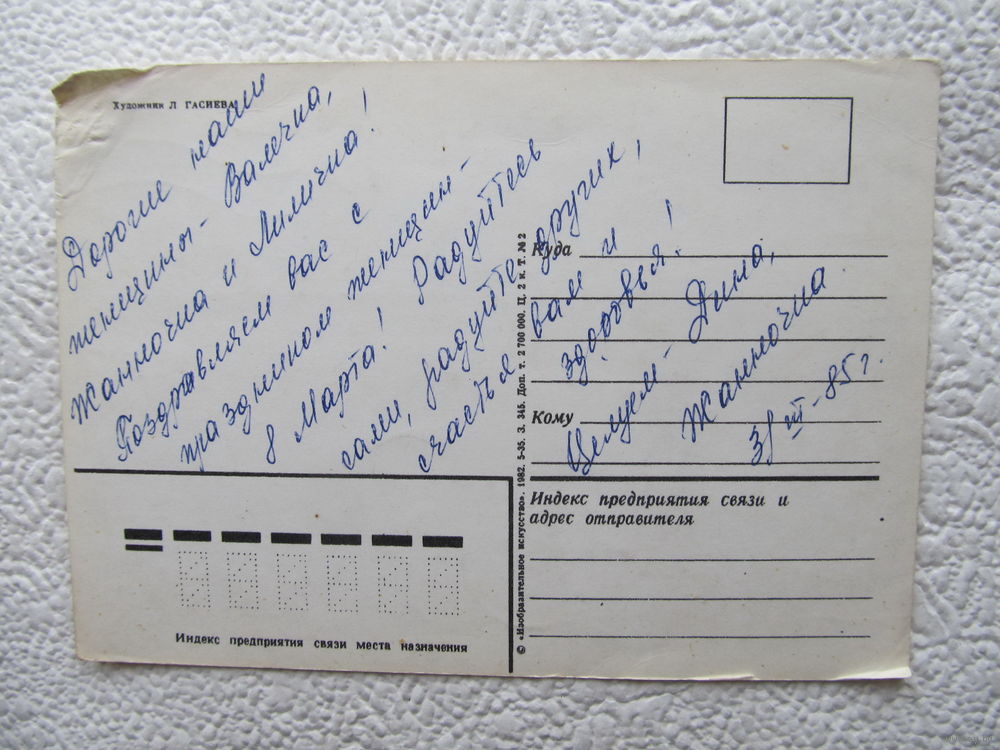 Художник Л ГАСИЕВА
Дорогие наши
женщины - Валечка,
Жанночка и Лилечка!
Поздравляем вас с
праздником женщин -
8 Марта! Радуйтесь
сами, радуйте других,
счастья вам и
здоровья!
Целуем - Дина,
Жанночка
3/III-85г.
Куда
Кому
Индекс предприятия связи и
адрес отправителя
Индекс предприятия связи места назначения
© «Изобразительное искусство». 1982. 5-35. З. 345. Доп. т. 2 700 000. Ц. 2 к. Т. № 2